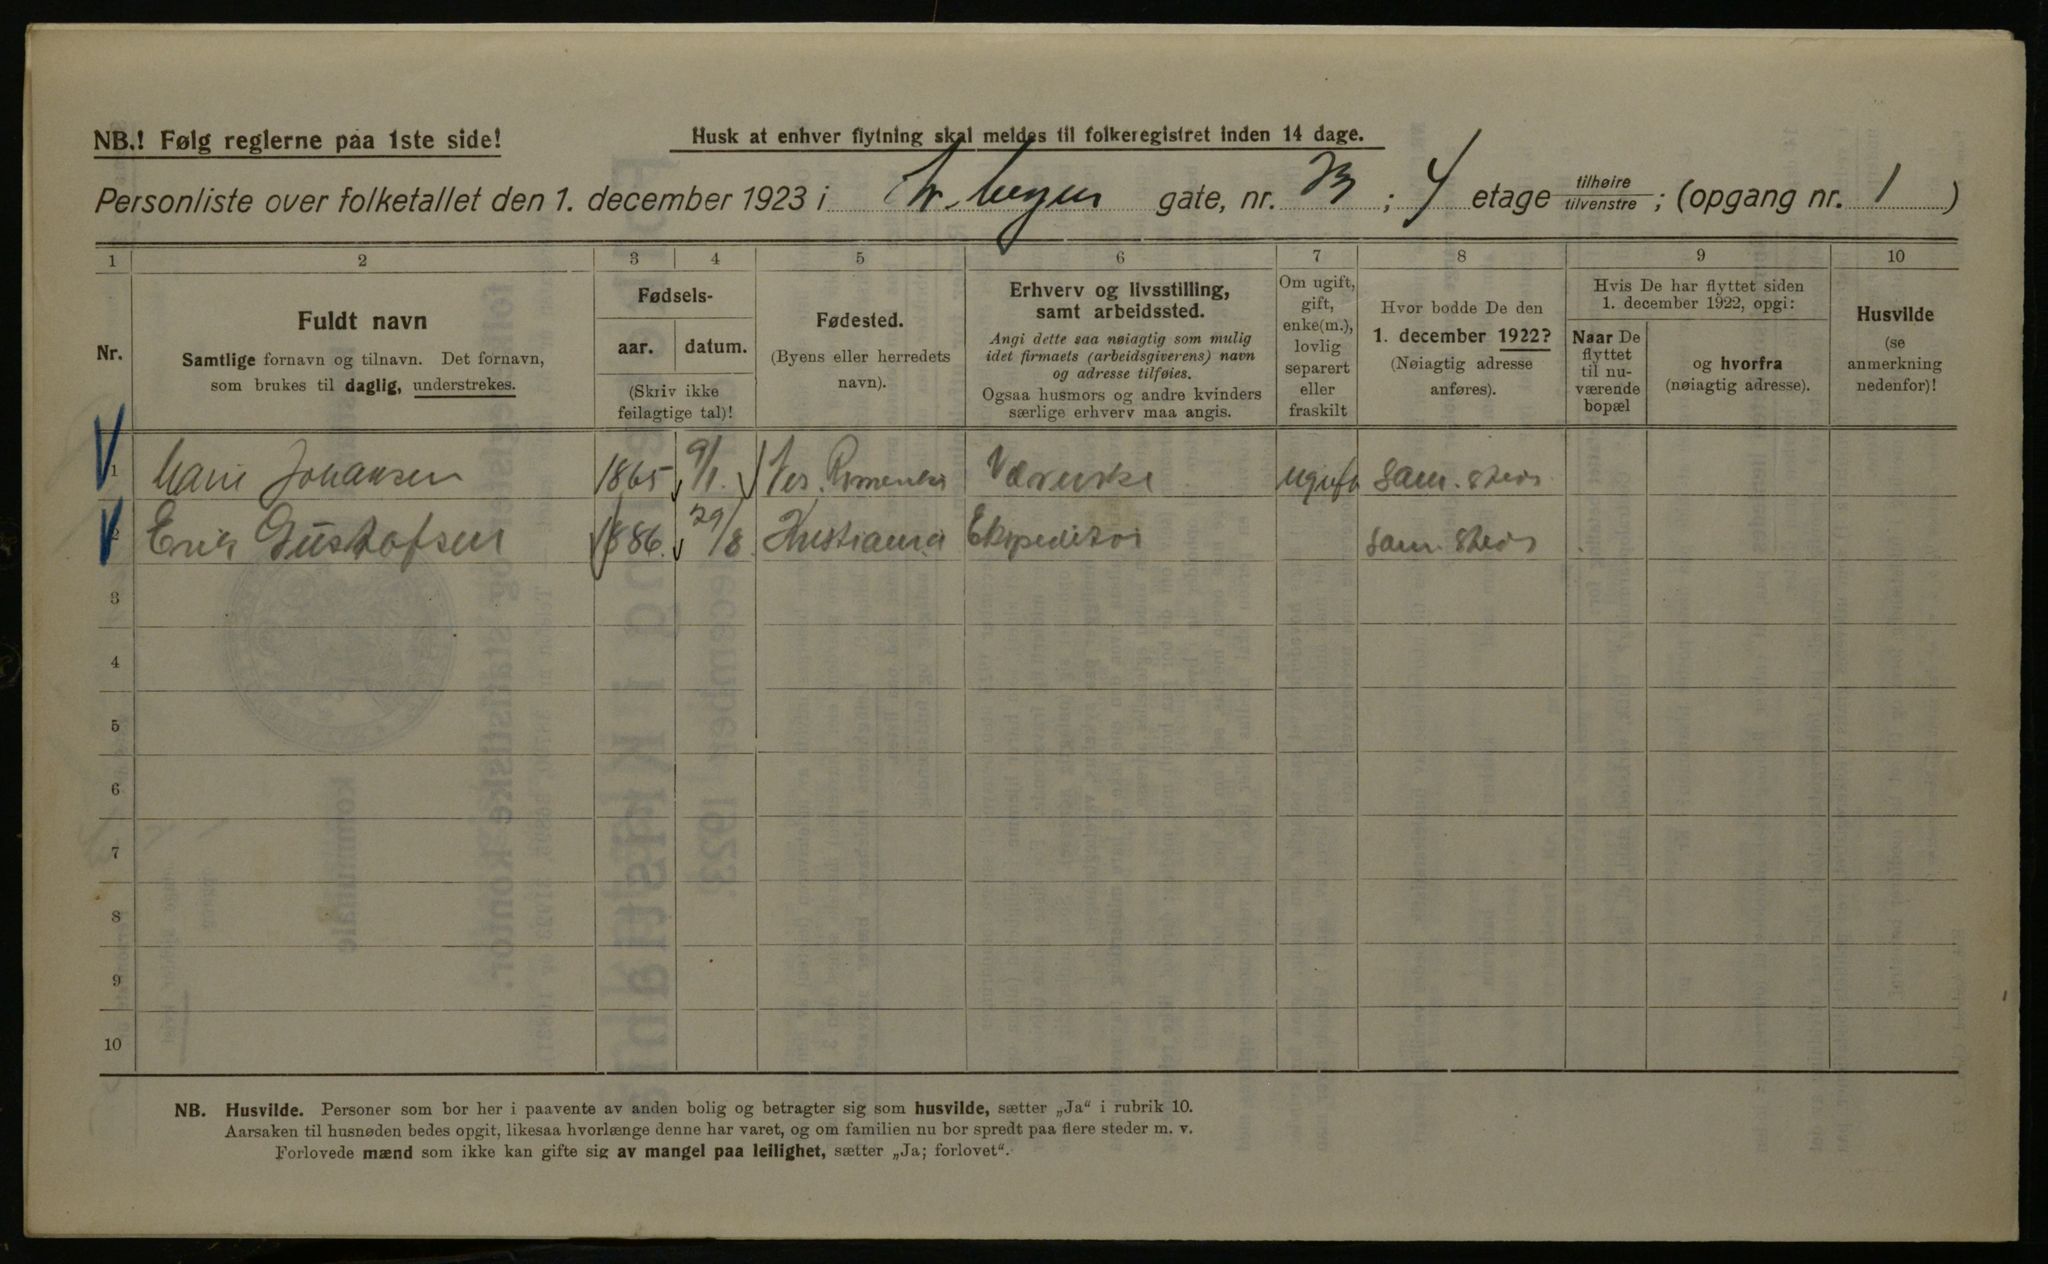 NB.! Følg reglerne paa 1ste side!
Husk at enhver flytning skal meldes til folkeregistret inden 14 dage.
Personliste over folketallet den 1. december 1923 i gate, nr. 23; 4 etage tilhøire tilvenstre; (opgang nr. 1)
1 2 3 4 5 6 7 8 9 10
Nr.
Fuldt navn
Samtlige fornavn og tilnavn. Det fornavn,
som brukes til daglig, understrekes.
Fødsels-
aar. datum.
(Skriv ikke
feilagtige tal)!
Fødested.
(Byens eller herredets
navn).
Erhverv og livsstilling,
samt arbeidssted.
Angi dette saa nøiagtig som mulig
idet firmaets (arbeidsgiverens) navn
og adresse tilføies.
Ogsaa husmors og andre kvinders
særlige erhverv maa angis.
Om ugift,
gift,
enke(m.),
lovlig
separert
eller
fraskilt
Hvor bodde De den
1. december 1922?
(Nøiagtig adresse
anføres).
Hvis De har flyttet siden
1. december 1922, opgi:
Naar De
flyttet
til nu-
værende
bopæl
og hvorfra
(nøiagtig adresse).
Husvilde
(se
anmerkning
nedenfor)!
1 Marie Johansen 1865 9/1. Ves. Værelske ugift sam. steds
2 Erik Gustafsen 1886. 29/8. Kristiania Ekspeditør sam. steds
3
4
5
6
7
8
9
10
NB. Husvilde. Personer som bor her i paavente av anden bolig og betragter sig som husvilde, sætter „Ja“ i rubrik 10.
Aarsaken til husnøden bedes opgit, likesaa hvorlænge denne har varet, og om familien nu bor spredt paa flere steder m. v.
Forlovede mænd som ikke kan gifte sig av mangel paa leilighet, sætter „Ja; forlovet“.